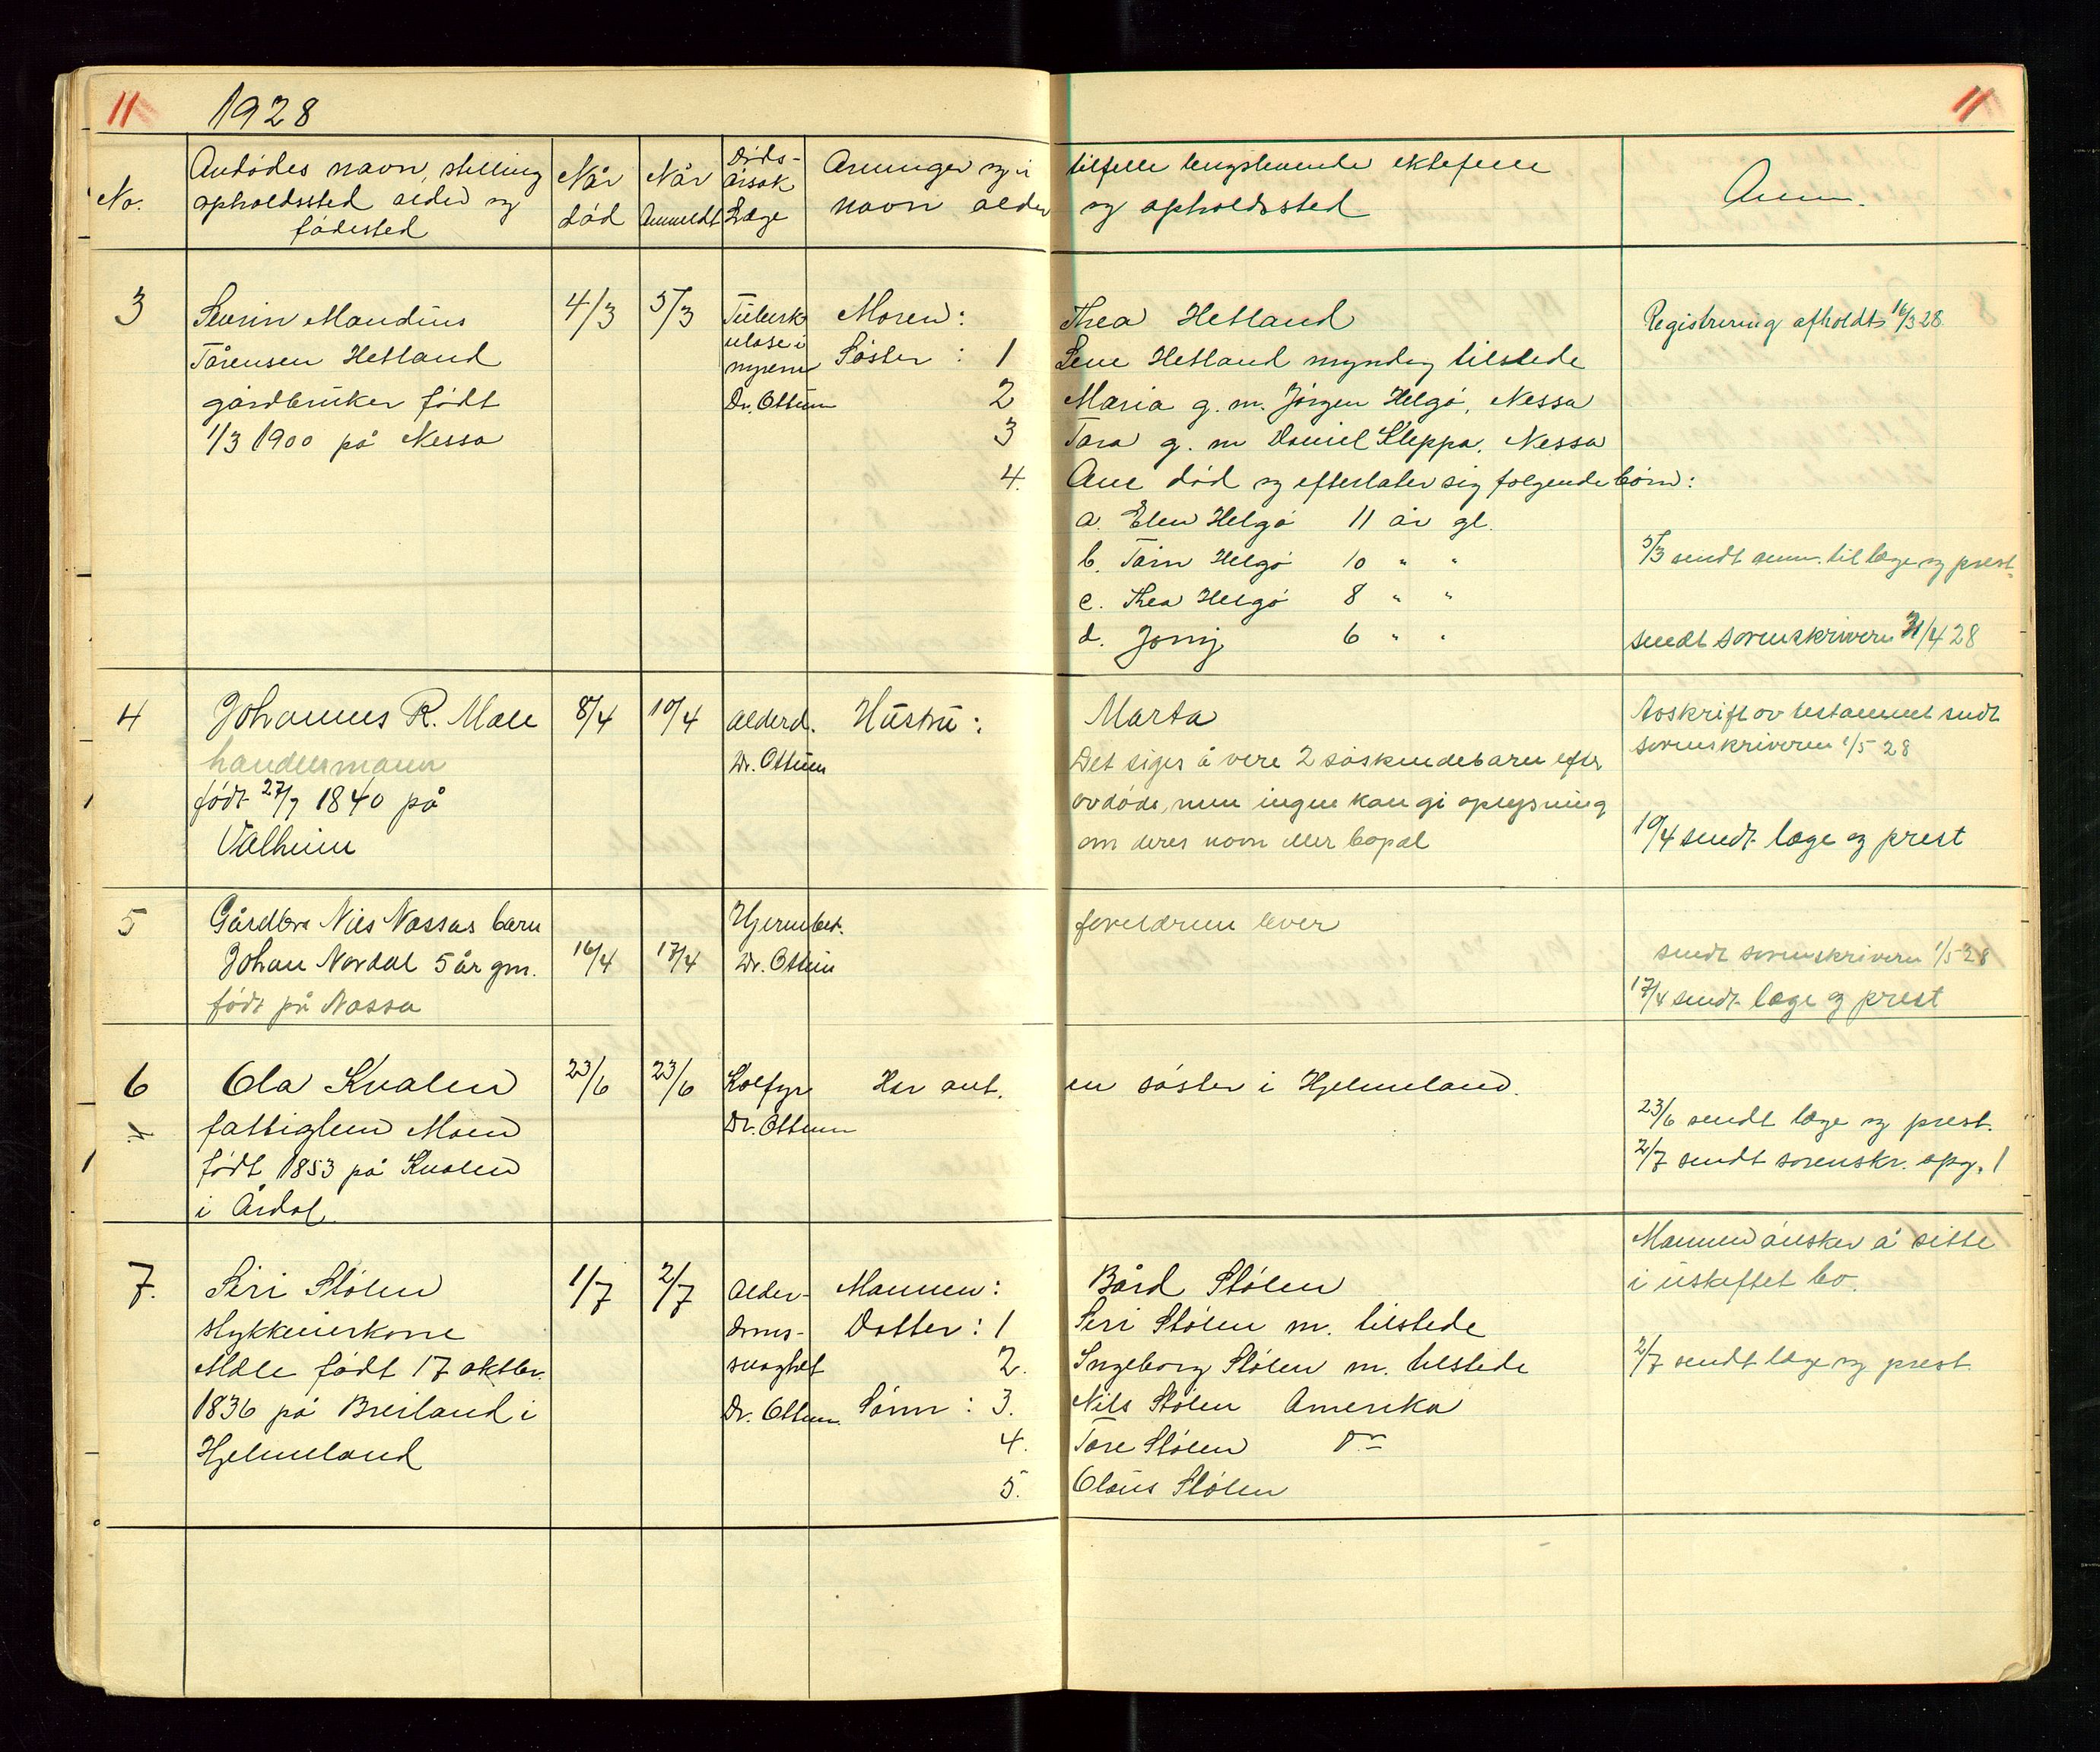 11
1928
11
No.
Avdødes navn, stilling
opholdssted alder og
fødested
Når
død
Når
Anmeldt
Døds-
årsak
Læge
Arvinger og i tilfelle lengstlevende ektefelle
navn alder og opholdssted
Anm.
3
Sevrin Maudius
Tårensen Hetland
gårdbruker født
1/3 1900 på Nessa
4/3
5/3
Tuberk
ulose i
nyrene
Dr. Ottum
Moren: Thea Hetland
Søster: 1 Lene Hetland myndig tilstede
2 Maria g. m. Jørgen Helgø, Nessa
3 Tara g. m Daniel Kleppa, Nessa
4. Ane død og efterlater sig følgende børn:
a. Elen Helgø 11 år gl.
b. Tårn Helgø 10 " "
c. Thea Helgø 8 " "
d. Jonny 6 " "
Registrering afholdt 16/3 28
5/3 sendt anm. til læge og prest.
sendt sorenskriveren /4 28
4
Johannes R. Mæle
handelsmann
født 27/7 1840 på
Valheim
8/4
10/4
alderd.
Dr. Ottum
Hustru: Marta
Det siges å vere 2 søskendebarn efter
avdøde, men ingen kan gi oplysning
om deres navn eller bopæl
Avskrift av testamnet sendt
sorenskriveren 1/5 28
10/4 sendt læge og prest
5
Gårdbr. Nils Nessas barn
Johan Nordal 5 år gm.
født på Nessa
16/4
17/4
Hjernebet.
Dr. Ottum
foreldrene lever
sendt sorenskriveren 1/5 28
17/4 sendt læge og prest
6
Ola Kvalen
fattiglem Moen
født 1853 på Kvalen
i Årdal
23/6
23/6
Kolfyr
Dr. Ottum
Har ant. en søster i Hjelmeland.
23/6 sendt læge og prest.
2/7 sendt sorenskr. opg. 1
7.
Siri Stølen
stykkeierkone
Mæle født 17 oktbr.
1836 på Breiland i
Hjelmeland
1/7
2/7
Alder-
doms-
svaghet
Dr. Ottum
Mannen: Bård Stølen
Dotter: 1 Siri Stølen m. tilstede
2. Ingeborg Stølen m. tilstede
Sønn: 3. Nils Stølen Amerika
4. Tore Stølen Do
5. Olaus Stølen
Mannen ønsker å sitte
i uskiftet bo.
2/7 sendt læge og prest.